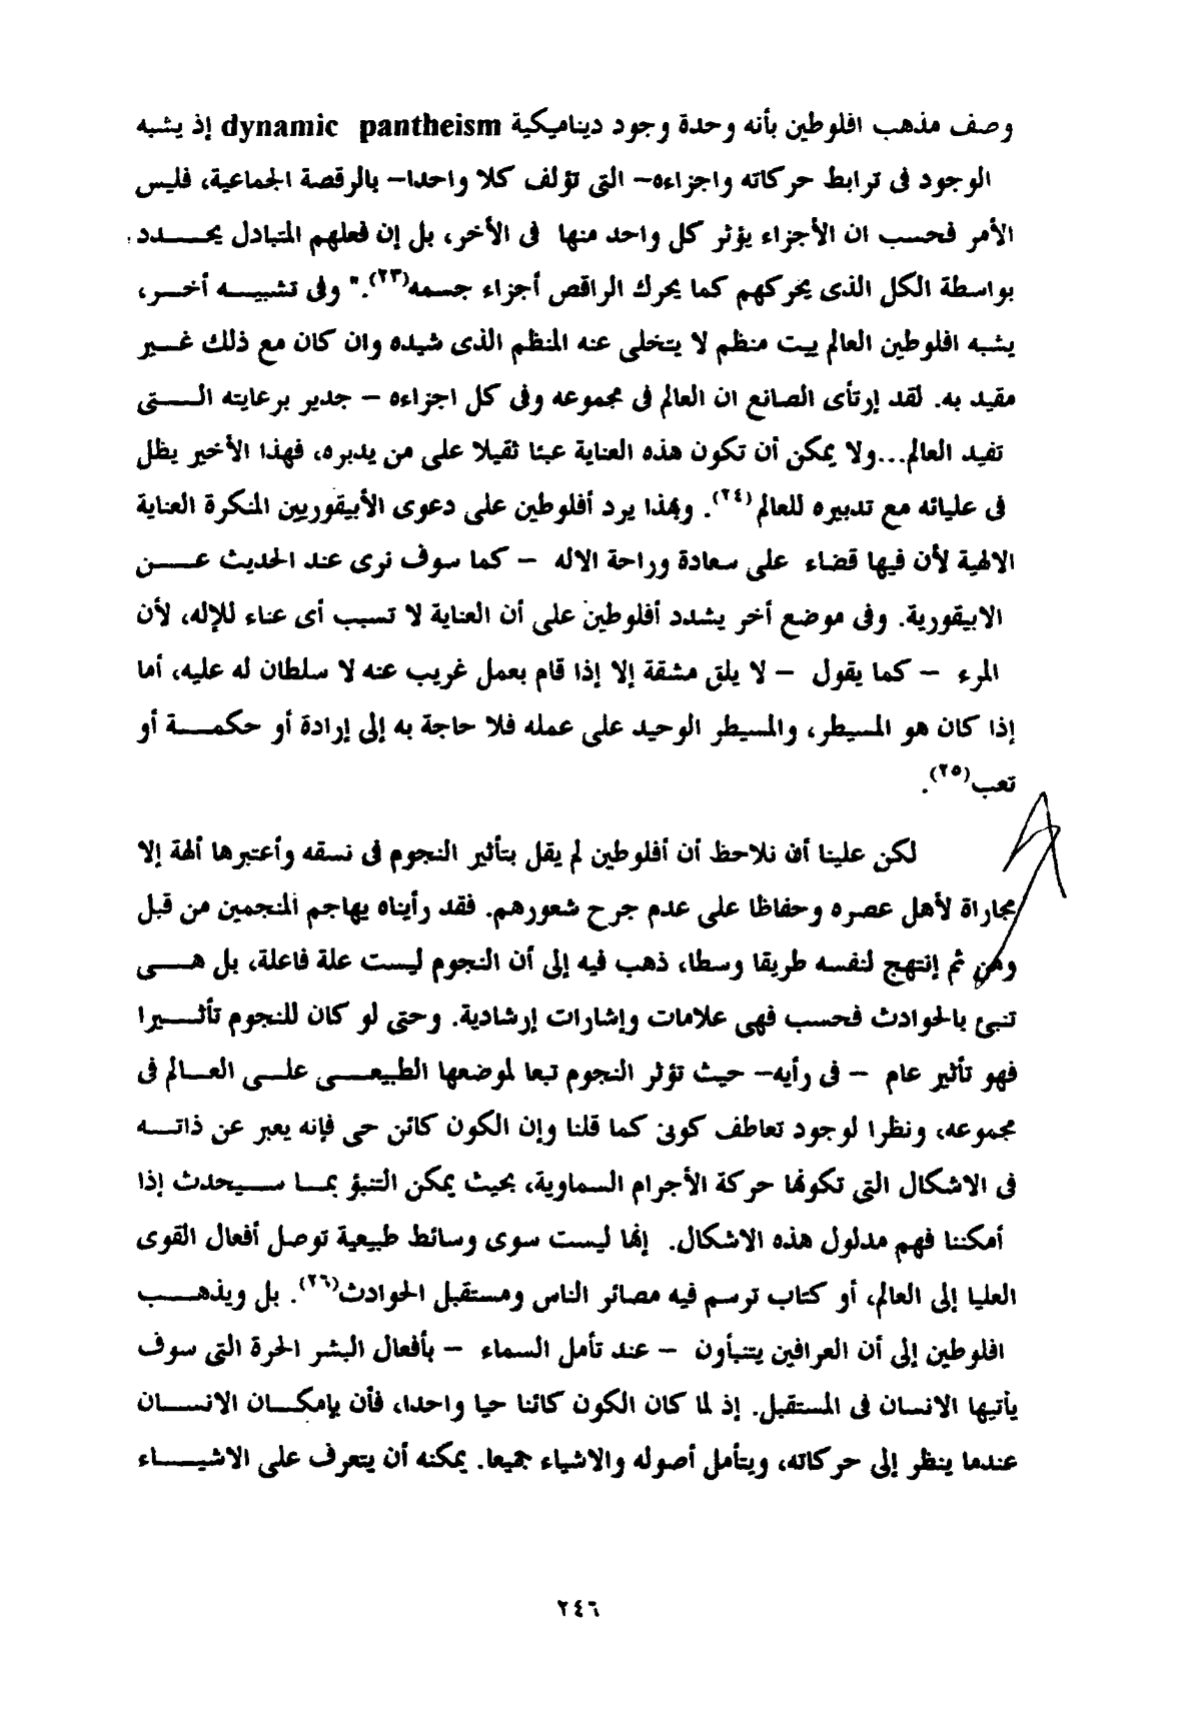 وصف مذهب افلوطين بأنه وحدة وجود ديناميكية dynamic pantheism إذ يشبه
الوجود فى ترابط حركاته واجزاءه– التى تؤلف كلا واحدا– بالرقصة الجماعية، فليس
الأمر فحسب ان الأجزاء يؤثر كل واحد منها فى الأخر، بل إن فعلهم المتبادل يحــــدد
بواسطة الكل الذى يحركهم كما يحرك الراقص أجزاء جسمه(٢٣)." وفى تشبيـــه أخـــر،
يشبه افلوطين العالم ببيت منظم لا يتخلى عنه المنظم الذى شيده وان كان مع ذلك غـــير
مقيد به. لقد إرتأى الصانع ان العالم فى مجموعه وفى كل اجزاءه – جدير برعايته الـــتى
تفيد العالم...ولا يمكن أن تكون هذه العناية عبئا ثقيلا على من يدبره، فهذا الأخير يظل
فى عليائه مع تدبيره للعالم(٢٤). وبهذا يرد أفلوطين على دعوى الأبيقوريين المنكرة العناية
الالهية لأن فيها قضاء على سعادة وراحة الاله – كما سوف نرى عند الحديث عـــن
الابيقورية. وفى موضع أخر يشدد أفلوطين على أن العناية لا تسبب أى عناء للإله، لأن
المرء – كما يقول – لا يلق مشقة إلا إذا قام بعمل غريب عنه لا سلطان له عليه، أما
إذا كان هو المسيطر، والمسيطر الوحيد على عمله فلا حاجة به إلى إرادة أو حكمـــة أو
تعب(٢٥).
لكن علينا أن نلاحظ أن أفلوطين لم يقل بتأثير النجوم فى نسقه وأعتبرها ألهة إلا
مجاراة لأهل عصره وحفاظا على عدم جرح شعورهم. فقد رأيناه يهاجم المنجمين من قبل
ومن ثم إنتهج لنفسه طريقا وسطا، ذهب فيه إلى أن النجوم ليست علة فاعلة، بل هـــى
تنبئ بالحوادث فحسب فهى علامات وإشارات إرشادية. وحتى لو كان للنجوم تأثـــيرا
فهو تأثير عام – فى رأيه– حيث تؤثر النجوم تبعا لموضعها الطبيعـــى علـــى العـــالم فى
مجموعه، ونظرا لوجود تعاطف كونى كما قلنا وإن الكون كائن حى فإنه يعبر عن ذاتـــه
فى الاشكال التى تكونها حركة الأجرام السماوية، بحيث يمكن التنبؤ بمـــا ســـيحدث إذا
أمكننا فهم مدلول هذه الاشكال. إنها ليست سوى وسائط طبيعية توصل أفعال القوى
العليا إلى العالم، أو كتاب ترسم فيه مصائر الناس ومستقبل الحوادث(٢٦). بل ويذهـــب
افلوطين إلى أن العرافين يتنبأون – عند تأمل السماء – بأفعال البشر الحرة التى سوف
يأتيها الانسان فى المستقبل. إذ لما كان الكون كائنا حيا واحدا، فأن بإمكـــان الانســـان
عندما ينظر إلى حركاته، ويتأمل أصوله والاشياء جميعا. يمكنه أن يتعرف على الاشيـــاء
٢٤٦